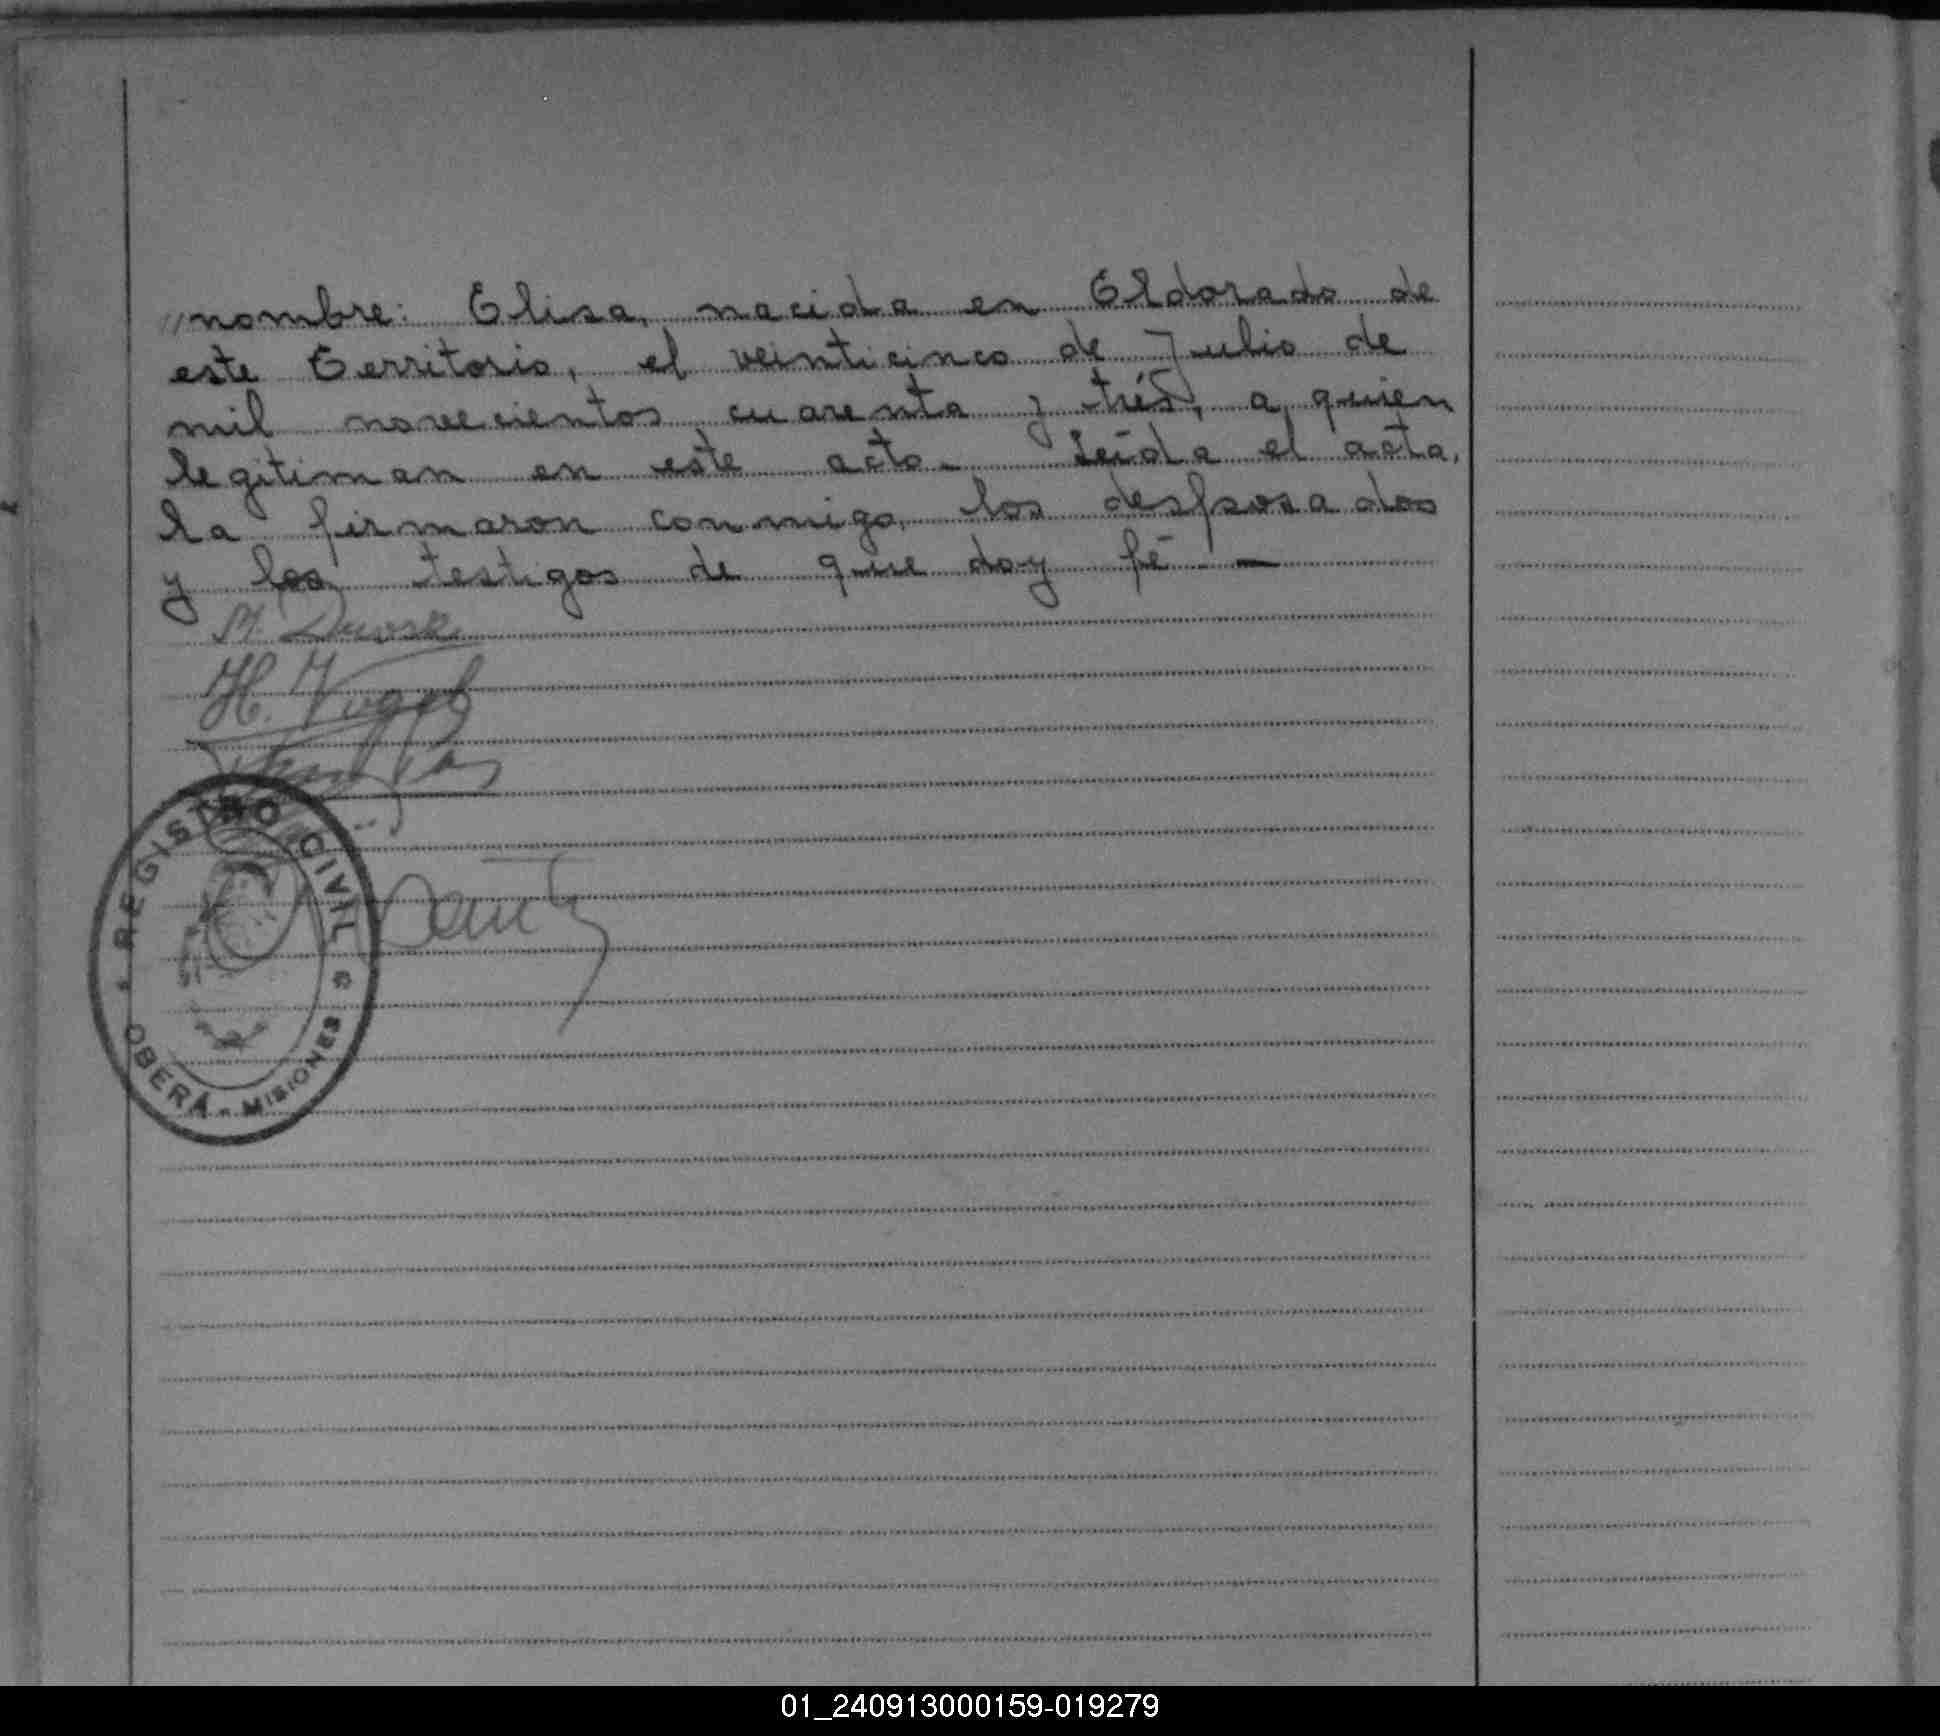 //nombre: Elisa, nacida en Eldorado de
este Territorio, el veinticinco de Julio de
mil novecientos cuarenta y trés, a quien
legitiman en este acto. Leída el acta,
la firmaron conmigo, los desposados
y los testigos de que doy fé. —
H. Vogel
REGISTRO CIVIL
OBERÁ - MISIONES
01_240913000159-019279